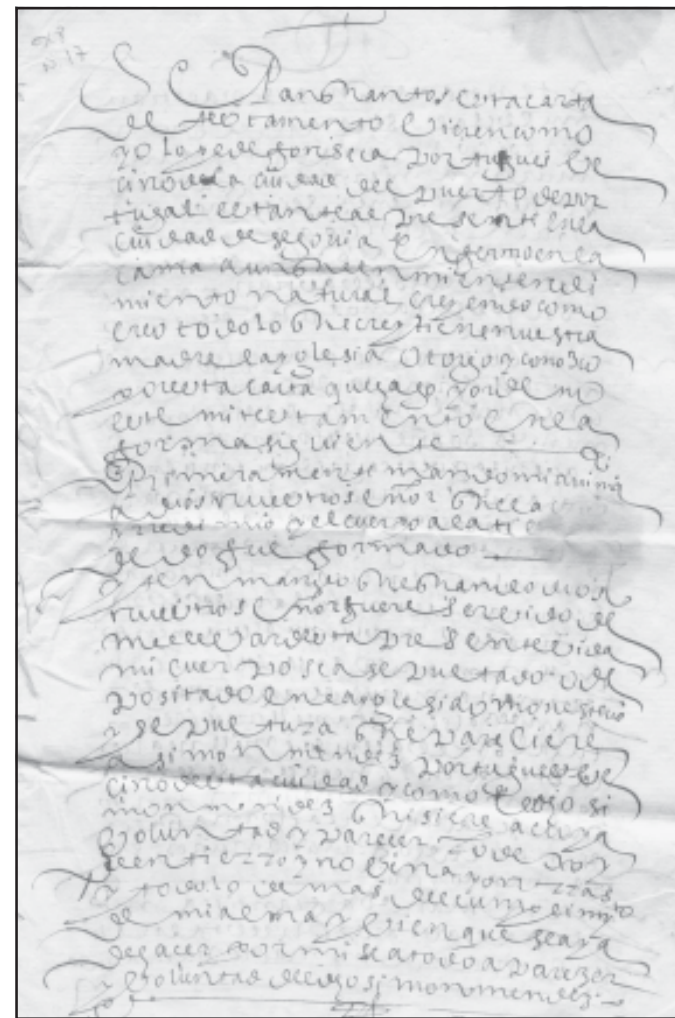 exp
nº 17
S Pan quantos esta carta
de testamento vieren como
yo lope de fonseca portugues ve
cino de la ciudad del puerto de por
tugal estante al presente en la
ciudad de segovia enfermo en la
cama aunque en mi entendi
miento natural creyendo como
creo todo lo que cree y tiene nuestra
madre la yglesia otorgo y conozco
por esta carta que hago y ordeno
este mi testamento en la
forma siguiente
Primeramente mando mi anima
a dios nuestro señor que la
y redimio y el cuerpo a la
de do fue formado
yten mando que quando dios
nuestro señor fuere servido de
me llevar desta presente vida
mi cuerpo sea sepultado o de
positado en la yglesia o monesterio
y sepultura que pareciere
a simon mendez portugues ve
cino desta ciudad y como el dho si
mon mendez quisiere a cuya
voluntad y parecer
entierro y
y todo lo demas del cumplimyto
de mi alma y bien que se aya
de hacer por mi sea todo a parezer
y voluntad del dho simon mendez